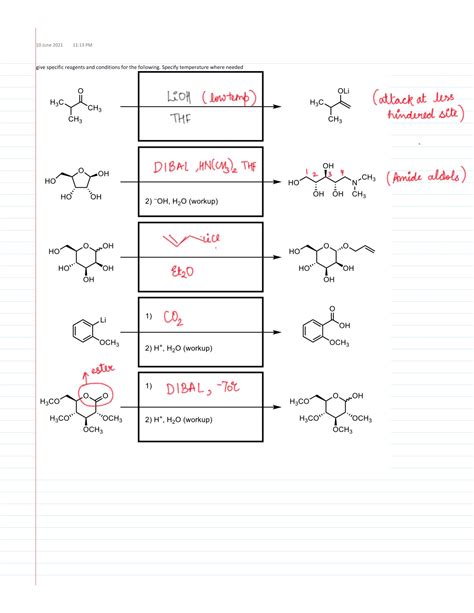 10 June 2021 11:13 PM
give specific reagents and conditions for the following. Specify temperature where needed
O
H₃C CH₃
CH₃
LiOH (low temp)
THF
OLi
H₃C
CH₃
(attack at less
hindered site)
HO O OH
HO OH
DIBAL, HN(CH₃)₂ THF
2) ⁻OH, H₂O (workup)
HO 1 2 OH 3 4 N CH₃
OH OH CH₃
(Amide aldols)
HO O OH
HO OH
OH
Et₂O
HO O O
HO OH
OH
Li
OCH₃
1) CO₂
2) H⁺, H₂O (workup)
O
OH
OCH₃
ester
H₃CO O O
H₃CO OCH₃
OCH₃
1) DIBAL, -70°C
2) H⁺, H₂O (workup)
H₃CO O OH
H₃CO OCH₃
OCH₃